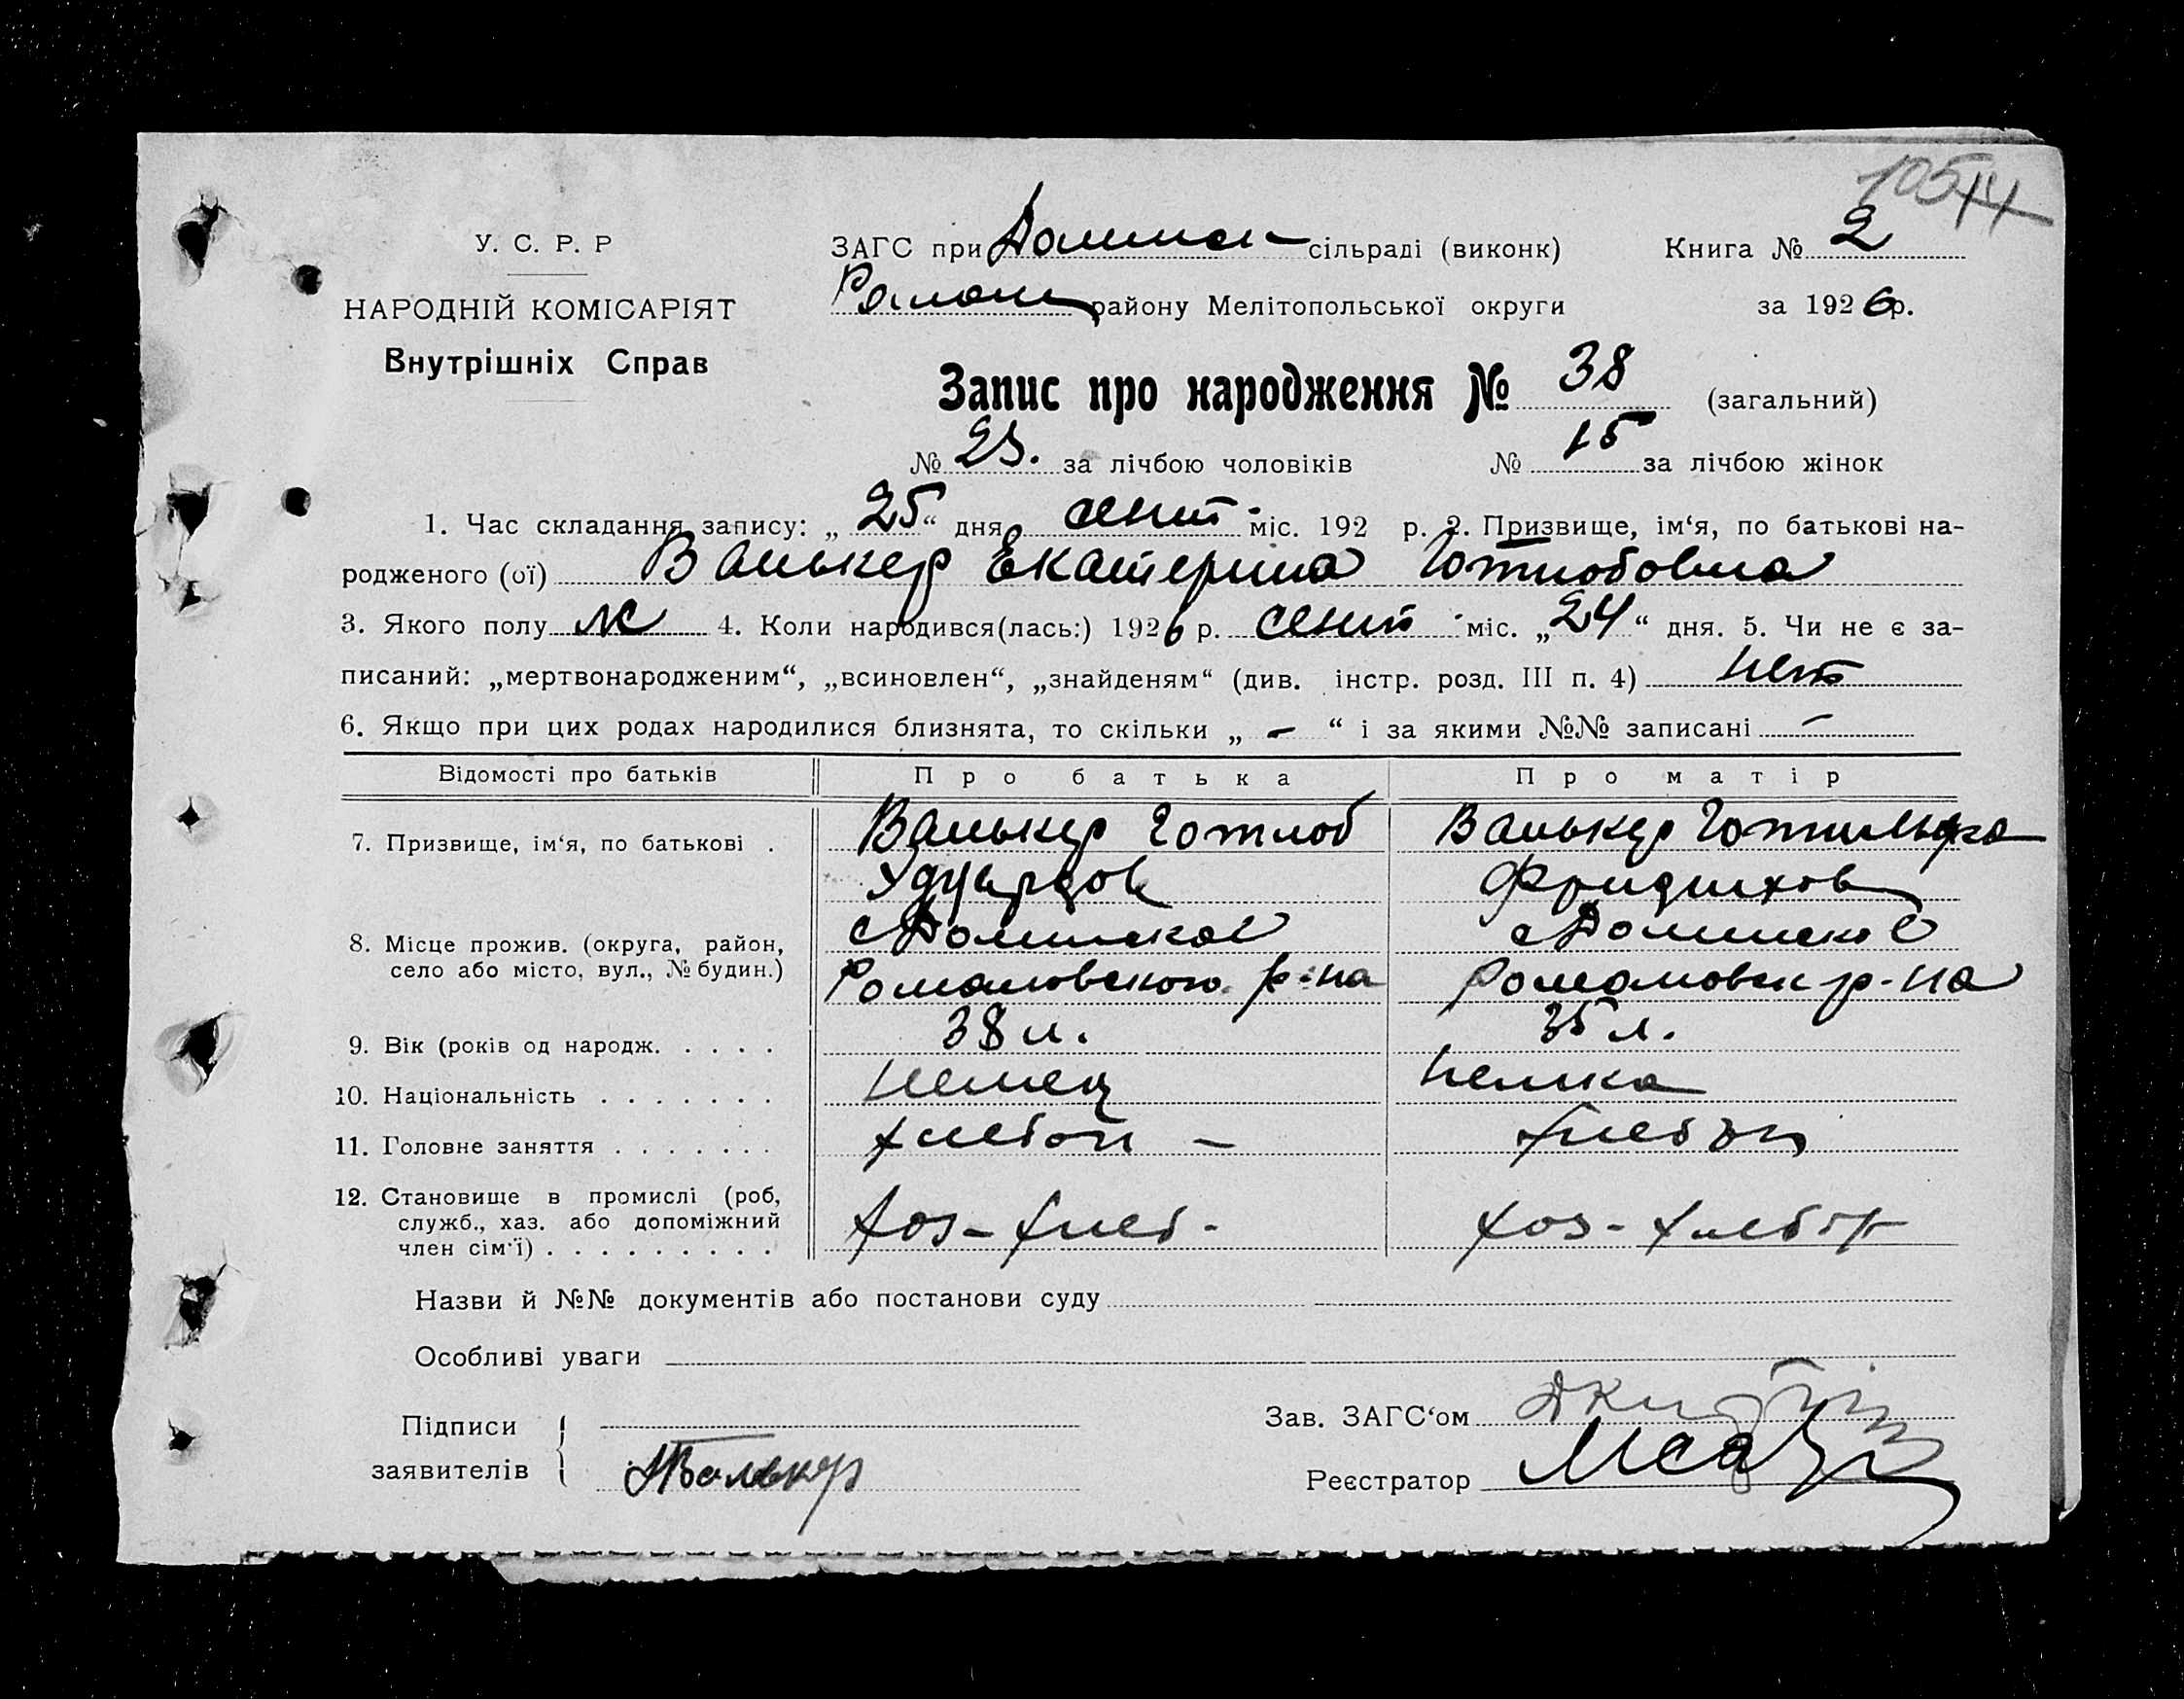 105 14
У. С. Р. Р
НАРОДНІЙ КОМІСАРІЯТ
Внутрішніх Справ
ЗАГС при Долинск сільраді (виконк) Книга № 2
Роман району Мелітопольської округи за 1926 р.
Запис про народження № 38 (загальний)
№ 23. за лічбою чоловіків № 15 за лічбою жінок
1. Час складання запису: „25“ дня сент міс. 192 р. 2. Призвище, ім‘я, по батькові на-
родженого (ої) Валькер Екатерина Готлобовна
3. Якого полу ж 4. Коли народився(лась:) 1926 р. сент міс. „24“ дня. 5. Чи не є за-
писаний: „мертвонародженим“, „всиновлен“, „знайденям“ (див. інстр. розд. III п. 4) нет
6. Якщо при цих родах народилися близнята, то скільки „ – “ і за якими №№ записані –
Відомості про батьків Про батька Про матір
7. Призвище, ім‘я, по батькові . Валькер Готлоб Валькер Готильда
Эдуардов Фридрихов
8. Місце прожив. (округа, район, с Долинское с Долинское
село або місто, вул., № будин.) Романовского р-на Романовск р-на
9. Вік (років од народж. . . . . 38 л. 35 л.
10. Національність . . . . . . . Немец Немка
11. Головне заняття . . . . . . . хлебоп – хлебоп
12. Становище в промислі (роб,
служб., хаз. або допоміжний хоз - хлеб - хоз - хлебоп
член сім‘ї) . . . . . . . . .
Назви й №№ документів або постанови суду
Особливі уваги
Підписи
заявителів Валькер
Зав. ЗАГС‘ом
Реєстратор